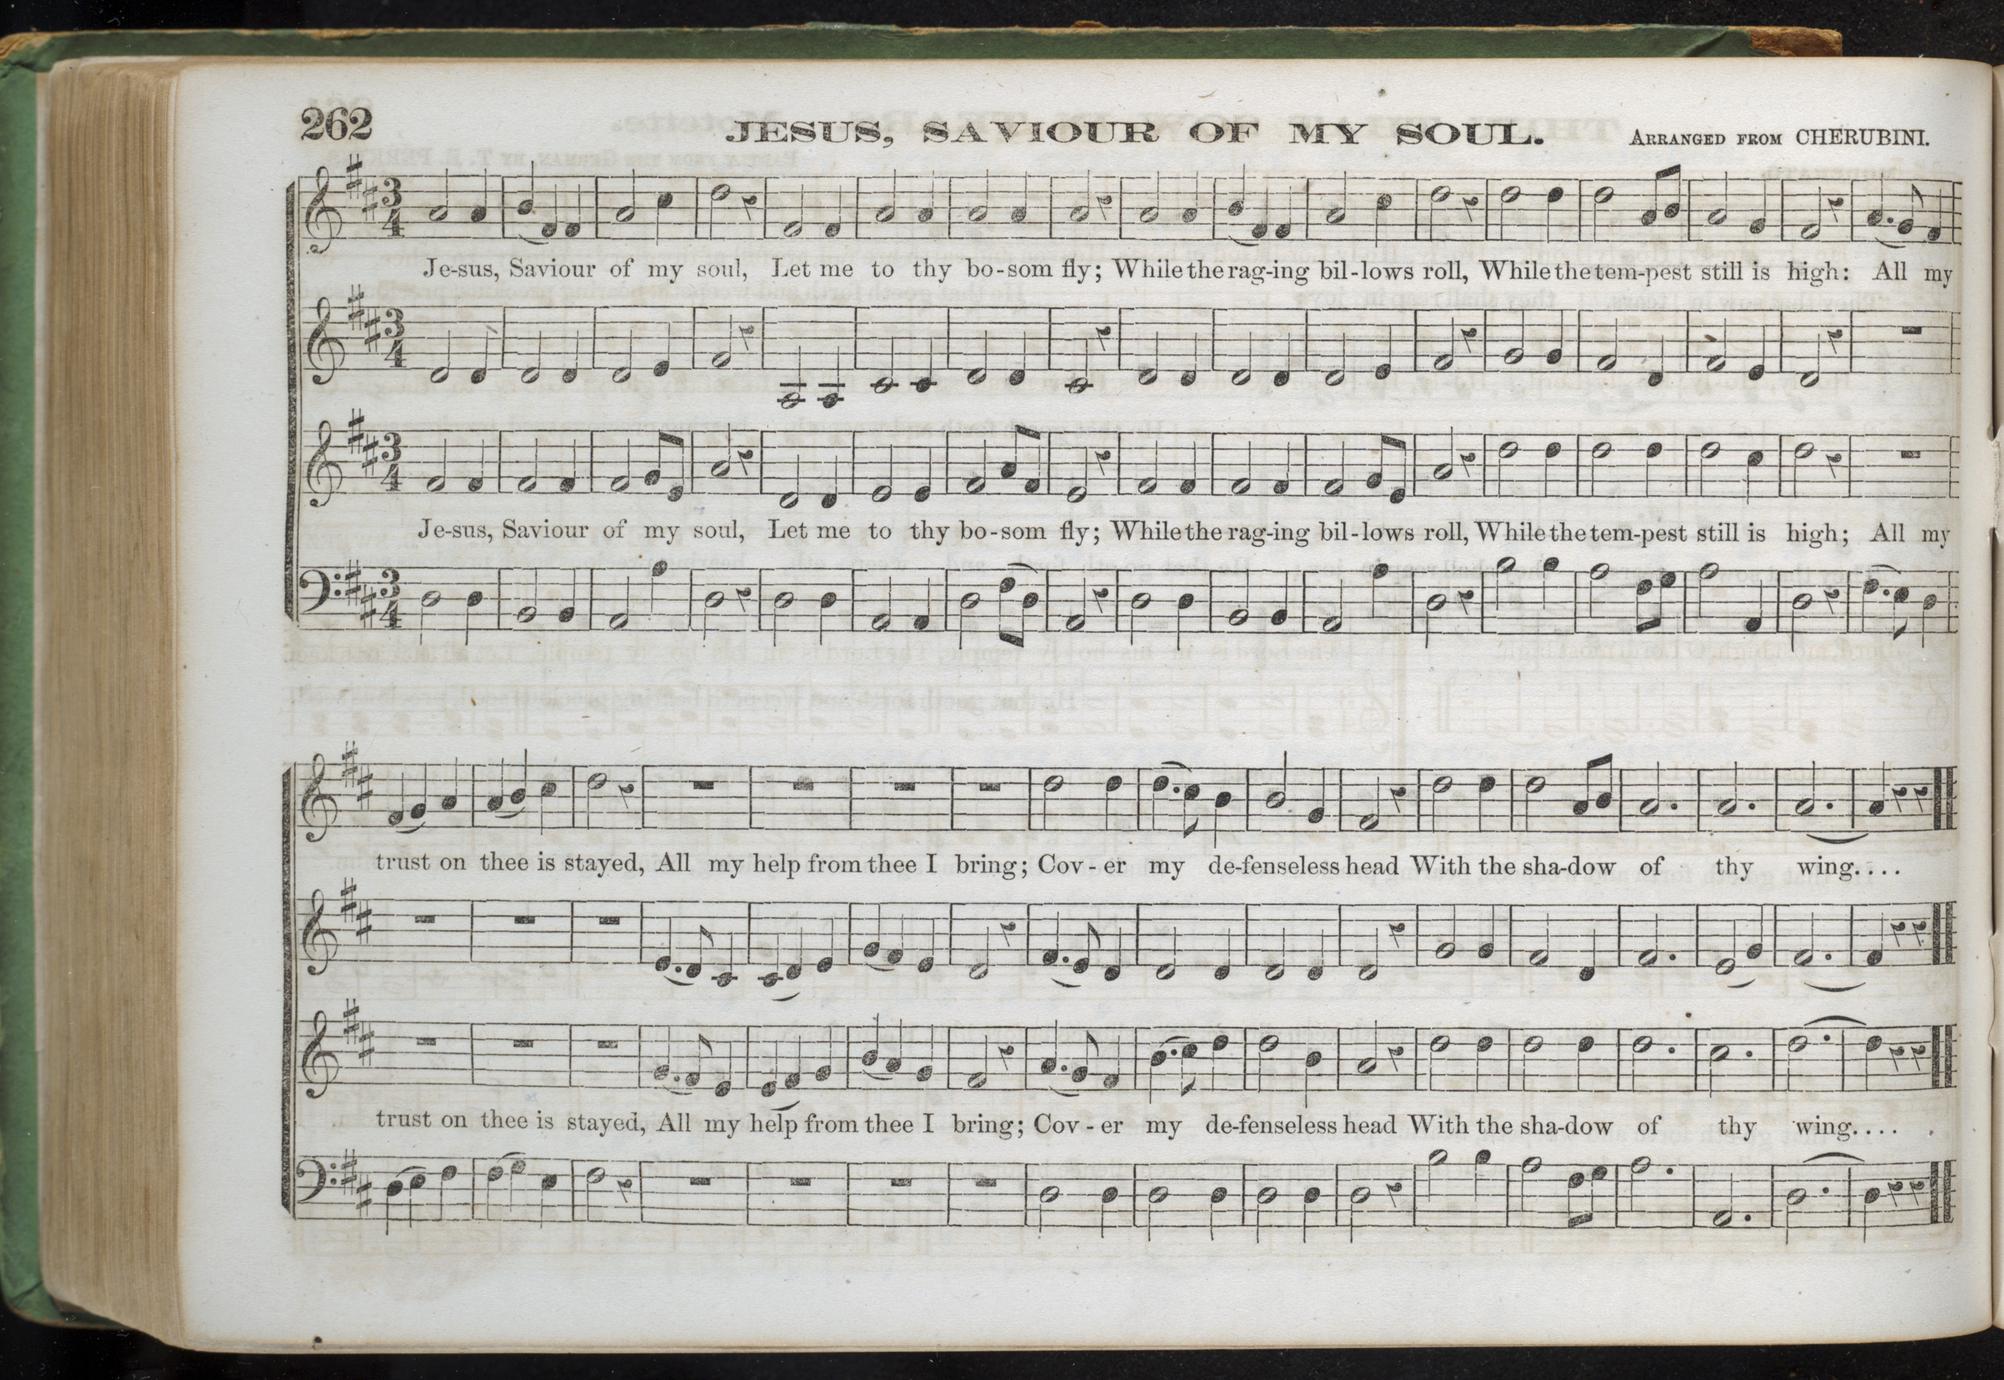 262
JESUS, SAVIOUR OF MY SOUL.
ARRANGED FROM CHERUBINI.
3
4
Je-sus, Saviour of my soul, Let me to thy bo-som fly; While the rag-ing bil-lows roll, While the tem-pest still is high: All my
3
4
3
4
Je-sus, Saviour of my soul, Let me to thy bo-som fly; While the rag-ing bil-lows roll, While the tem-pest still is high; All my
3
4
trust on thee is stayed, All my help from thee I bring; Cov-er my de-fenseless head With the sha-dow of thy wing....
trust on thee is stayed, All my help from thee I bring; Cov-er my de-fenseless head With the sha-dow of thy wing....